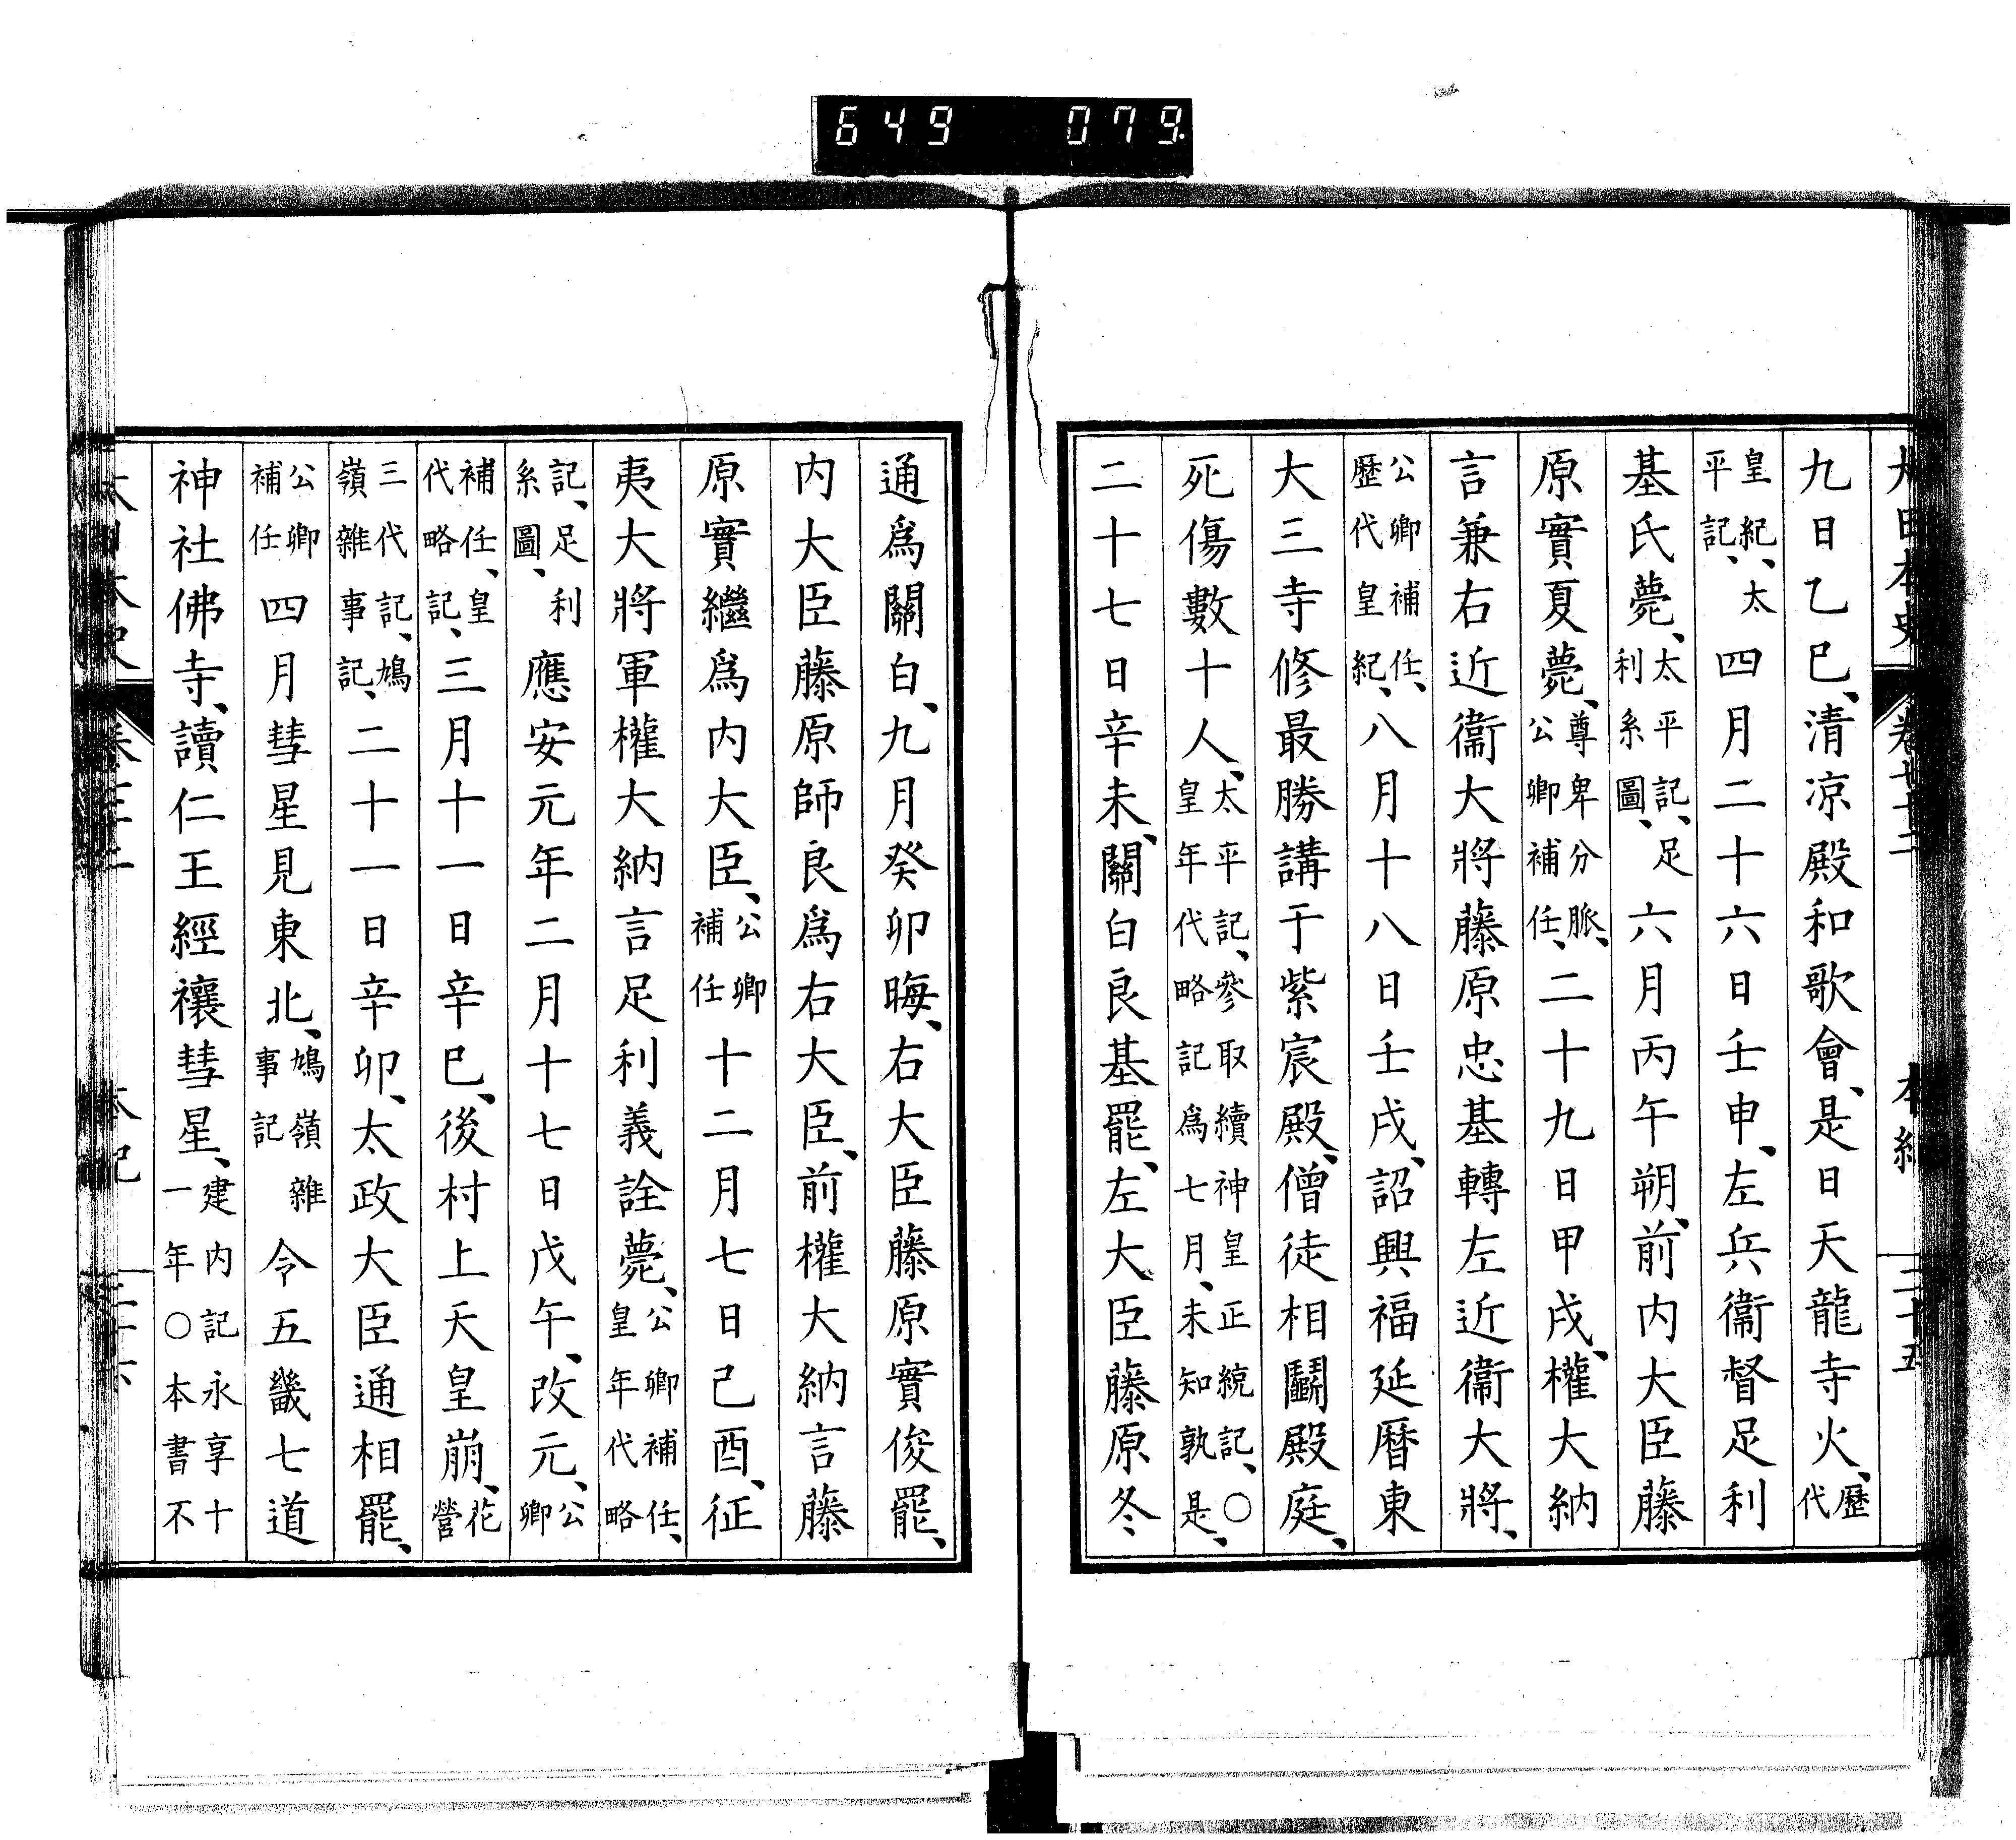 649 079.
大日本史 卷七十二 本紀 二十五
九日乙巳、清凉殿和歌會、是日天龍寺火、歷代
皇紀、太平記、四月二十六日壬申、左兵衞督足利
基氏薨、太平記、足利系圖、六月丙午朔、前内大臣藤
原實夏薨、尊卑分脈、公卿補任、二十九日甲戌、權大納
言兼右近衞大將藤原忠基轉左近衞大將、
公卿補任、歷代皇紀、八月十八日壬戌、詔興福延曆東
大三寺修最勝講于紫宸殿、僧徒相鬭殿庭、
死傷數十人、太平記、參取續神皇正統記、○皇年代略記爲七月、未知孰是、
二十七日辛未、關白良基罷、左大臣藤原冬
通爲關白、九月癸卯晦、右大臣藤原實俊罷、
内大臣藤原師良爲右大臣、前權大納言藤
原實繼爲内大臣、公卿補任十二月七日己酉、征
夷大將軍權大納言足利義詮薨、公卿補任、皇年代略
記、足利系圖、應安元年二月十七日戊午、改元、公卿
補任、皇代略記、三月十一日辛巳、後村上天皇崩、花營
三代記、鳩嶺雜事記、二十一日辛卯、太政大臣通相罷、
公卿補任四月彗星見東北、鳩嶺雜事記令五畿七道
神社佛寺、讀仁王經禳彗星、建内記永享十一年○本書不